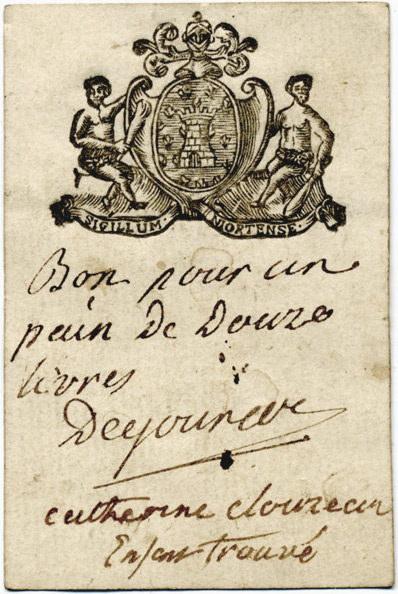 SIGILLUM · NIORTENSE ·
Bon pour un
pain de Douze
livres
catherine clouzeau
Enfant trouvé